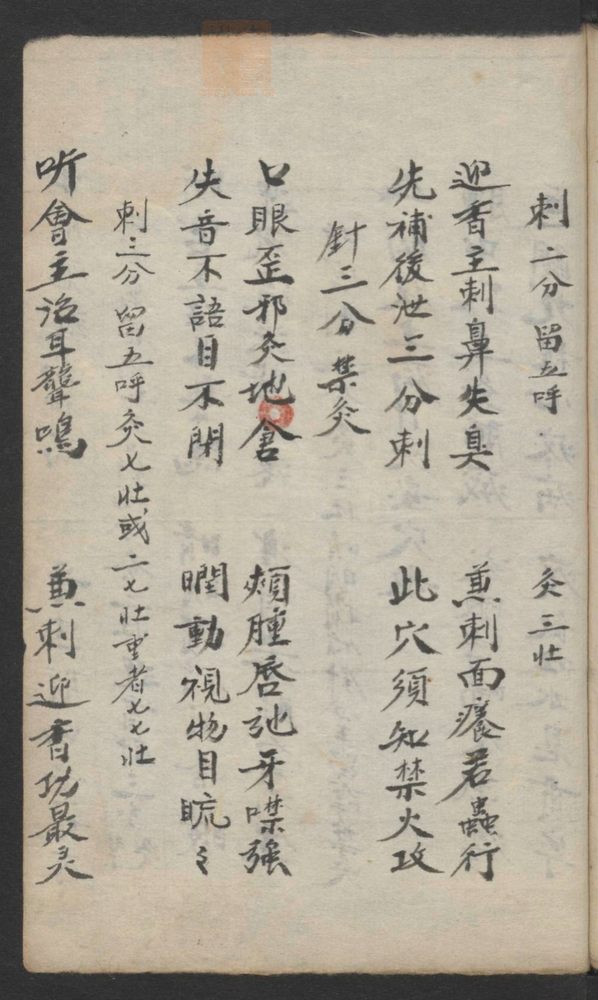 刺二分留五呼 灸三壮
迎香主刺鼻失臭 兼刺面癢若蟲行
先補後泄三分刺 此穴須知禁火攻
針三分禁灸
口眼歪邪灸地倉 頰腫唇訛牙噤強
失音不語目不閉 瞤動視物目䀮〻
刺三分留五呼灸七壮或二七壮重者七七壮
听會主治耳聾鳴 兼刺迎香功最灵